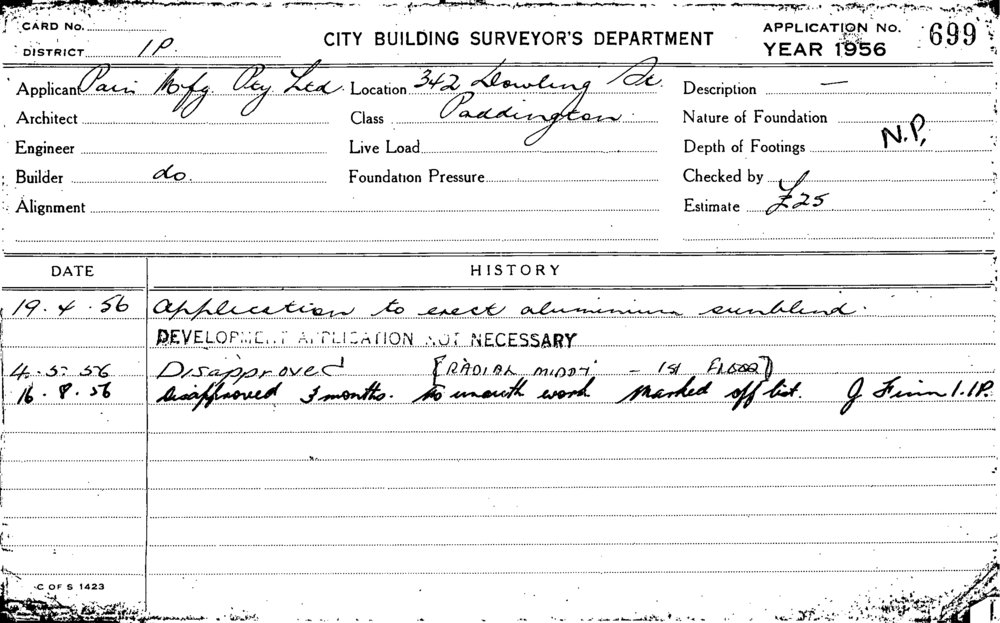 CARD No.
DISTRICT 1P.
CITY BUILDING SURVEYOR'S DEPARTMENT
APPLICATION No. 699
YEAR 1956
Applicant Pain Mfg. Pty Ltd. Location 342 Dowling St. Description —
Architect Class Paddington. Nature of Foundation
Engineer Live Load Depth of Footings N.P.
Builder do. Foundation Pressure Checked by
Alignment Estimate £25
DATE HISTORY
19.4.56 Application to erect aluminium sunblind.
DEVELOPMENT APPLICATION NOT NECESSARY
4.5.56 Disapproved [RADIAL - 1st FLOOR]
16.8.56 Disapproved 3 months. No work Marked off list. J 1.1P.
C OF S 1423